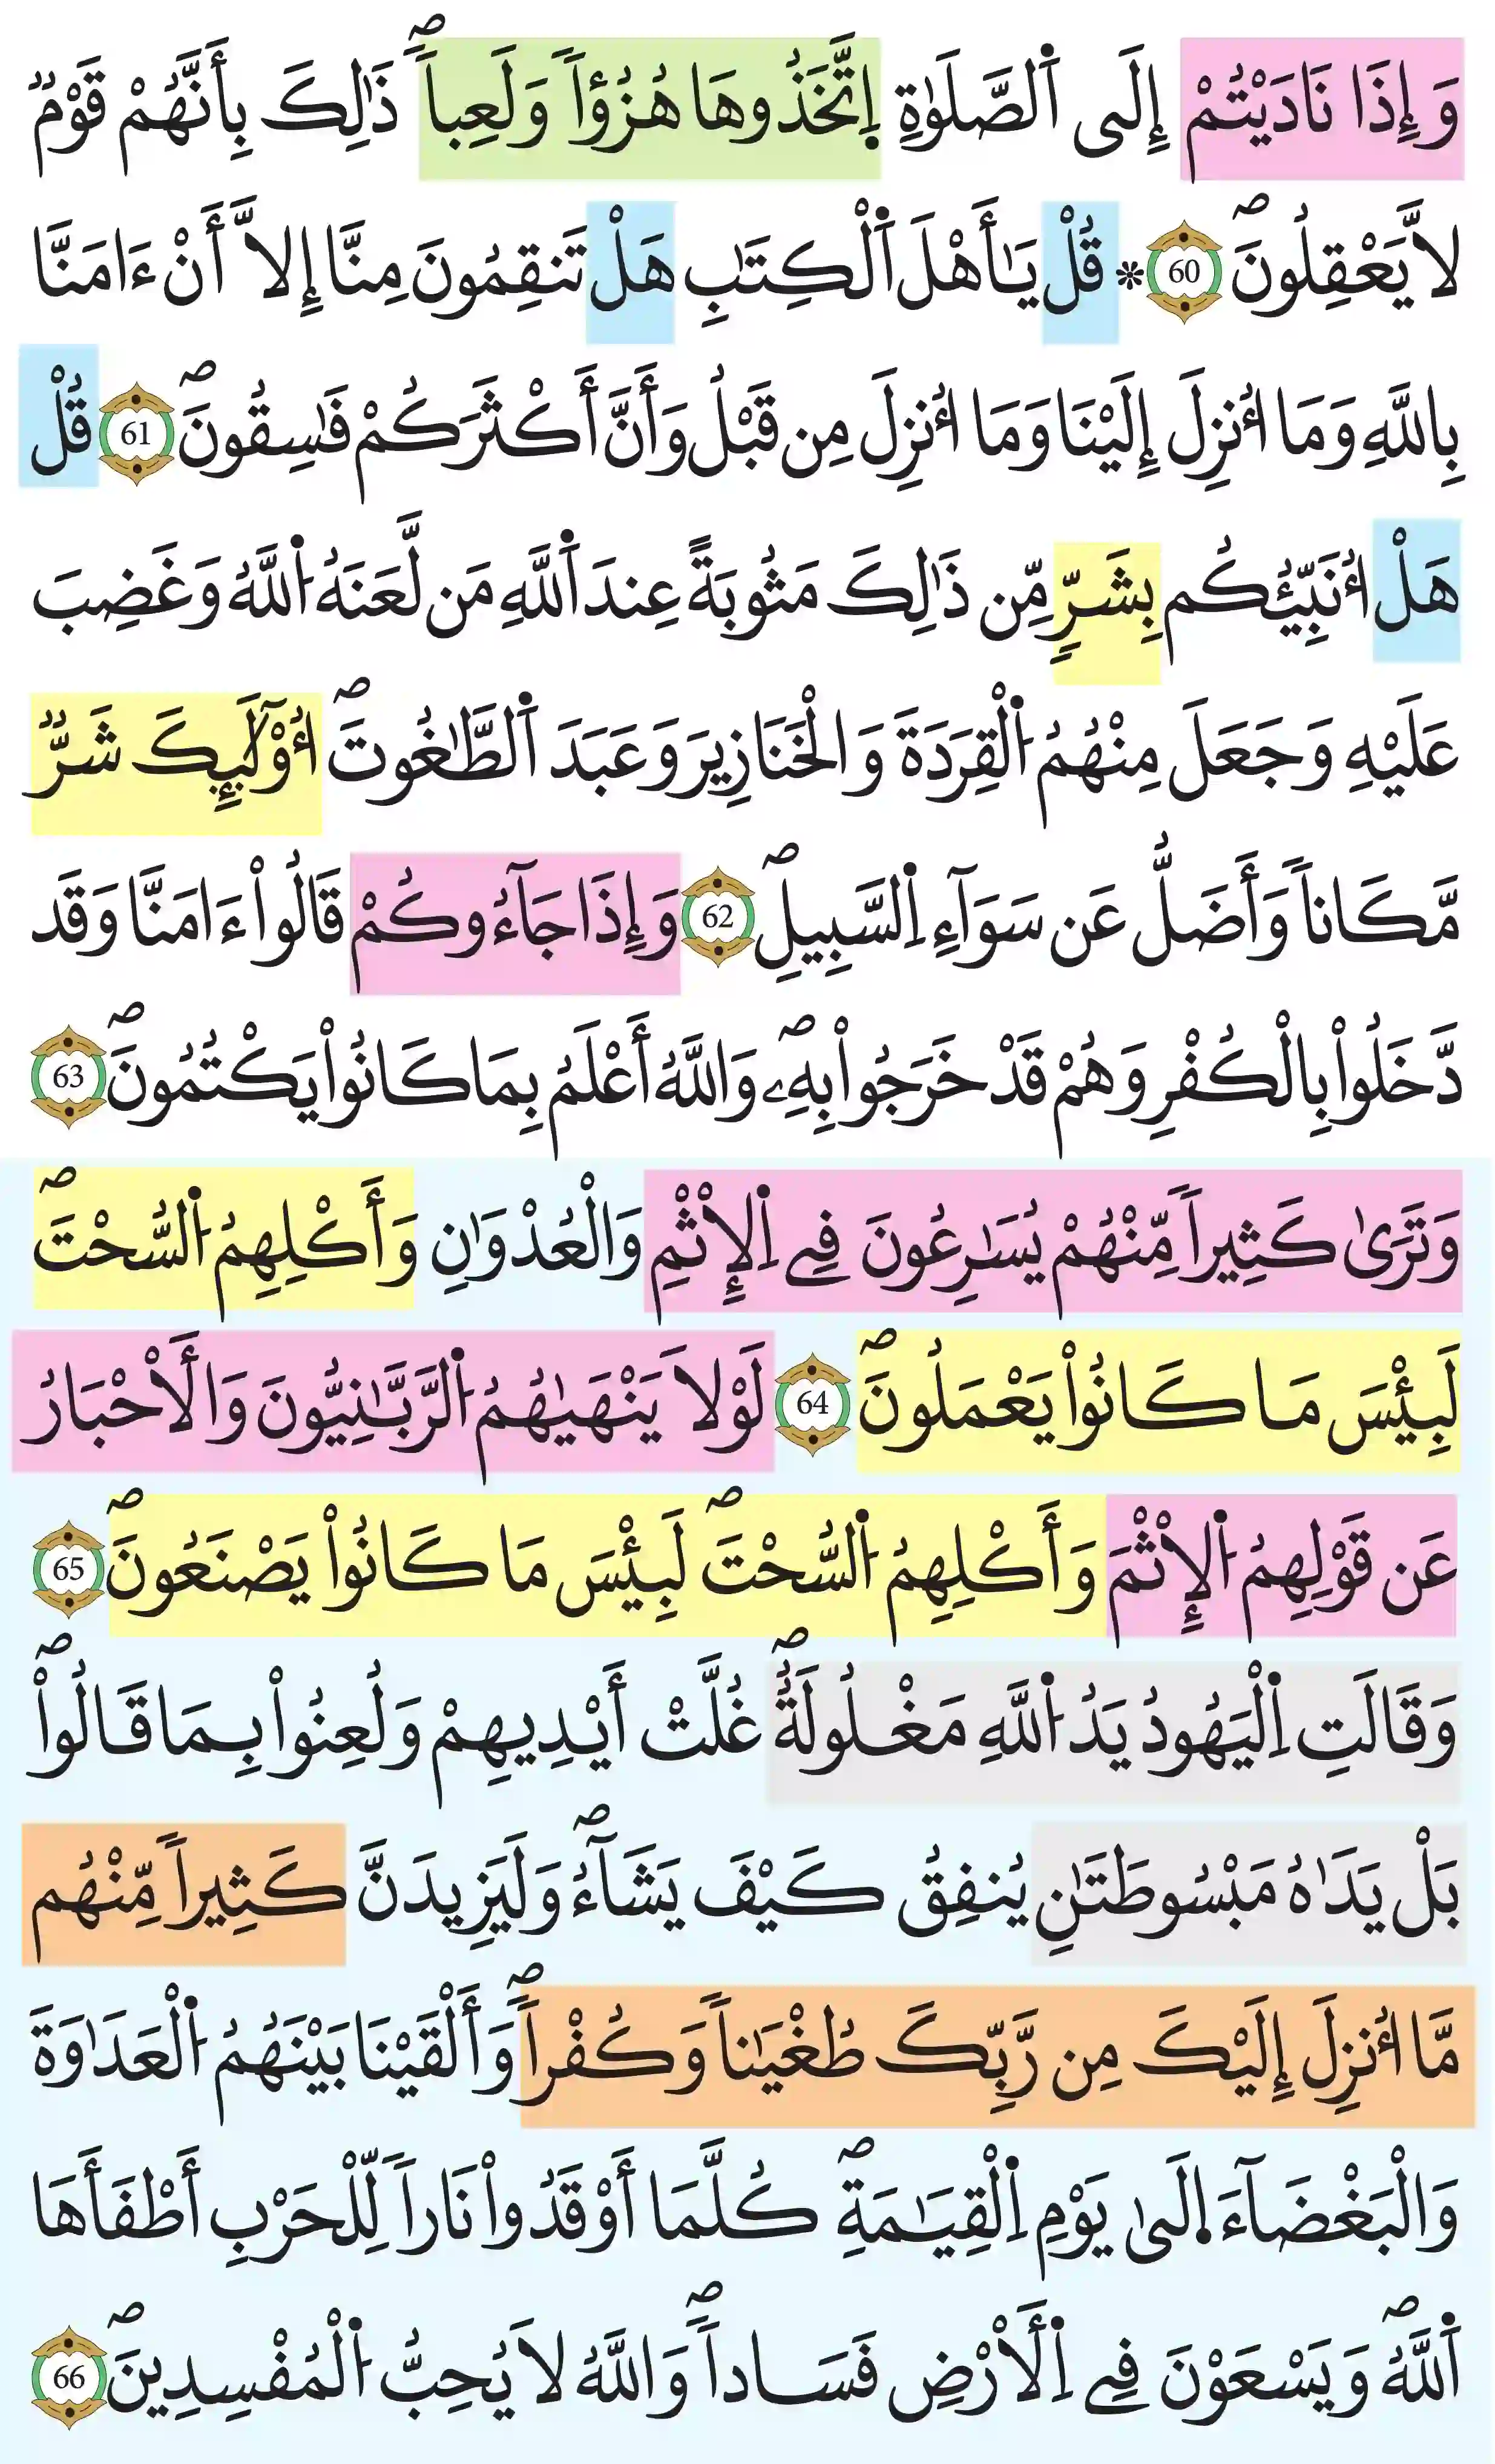 وَإِذَا نَادَيْتُمْ إِلَى اَ۬لصَّلَوٰةِ اِ۪تَّخَذُوهَا هُزُؤاٗ وَلَعِباٗۖ ذَٰلِكَ بِأَنَّهُمْ قَوْمٞ
لَّا يَعْقِلُونَۖ 60 ۞ قُلْ يَٰأَهْلَ اَ۬لْكِتَٰبِ هَلْ تَنقِمُونَ مِنَّا إِلَّا أَنْ ءَامَنَّا
بِاللَّهِ وَمَا أُنزِلَ إِلَيْنَا وَمَا أُنزِلَ مِن قَبْلُ وَأَنَّ أَكْثَرَكُمْ فَٰسِقُونَۖ 61 قُلْ
هَلْ أُنَبِّئُكُم بِشَرّٖ مِّن ذَٰلِكَ مَثُوبَةً عِندَ اَ۬للَّهِ مَن لَّعَنَهُ اُ۬للَّهُ وَغَضِبَ
عَلَيْهِ وَجَعَلَ مِنْهُمُ اُ۬لْقِرَدَةَ وَالْخَنَازِيرَ وَعَبَدَ اَ۬لطَّٰغُوتَۖ أُوْلَٰٓئِكَ شَرّٞ
مَّكَاناٗ وَأَضَلُّ عَن سَوَآءِ اِ۬لسَّبِيلِۖ 62 وَإِذَا جَآءُوكُمْ قَالُواْ ءَامَنَّا وَقَد
دَّخَلُواْ بِالْكُفْرِ وَهُمْ قَدْ خَرَجُواْ بِهِۦۖ وَاللَّهُ أَعْلَمُ بِمَا كَانُواْ يَكْتُمُونَۖ 63
وَتَرَىٰ كَثِيراٗ مِّنْهُمْ يُسَٰرِعُونَ فِے اِ۬لْإِثْمِ وَالْعُدْوَٰنِ وَأَكْلِهِمُ اُ۬لسُّحْتَۖ
لَبِئْسَ مَا كَانُواْ يَعْمَلُونَۖ 64 لَوْلَا يَنْهَىٰهُمُ اُ۬لرَّبَّٰنِيُّونَ وَالْأَحْبَارُ
عَن قَوْلِهِمُ اُ۬لْإِثْمَ وَأَكْلِهِمُ اُ۬لسُّحْتَۖ لَبِئْسَ مَا كَانُواْ يَصْنَعُونَۖ 65
وَقَالَتِ اِ۬لْيَهُودُ يَدُ اُ۬للَّهِ مَغْلُولَةٌۖ غُلَّتْ أَيْدِيهِمْ وَلُعِنُواْ بِمَا قَالُواْۖ
بَلْ يَدَٰهُ مَبْسُوطَتَٰنِ يُنفِقُ كَيْفَ يَشَآءُۖ وَلَيَزِيدَنَّ كَثِيراٗ مِّنْهُم
مَّا أُنزِلَ إِلَيْكَ مِن رَّبِّكَ طُغْيَٰناٗ وَكُفْراٗۖ وَأَلْقَيْنَا بَيْنَهُمُ اُ۬لْعَدَٰوَةَ
وَالْبَغْضَآءَ ا۪لَىٰ يَوْمِ اِ۬لْقِيَٰمَةِۖ كُلَّمَا أَوْقَدُواْ نَاراٗ لِّلْحَرْبِ أَطْفَأَهَا
اَ۬للَّهُۖ وَيَسْعَوْنَ فِے اِ۬لْأَرْضِ فَسَاداٗۖ وَاللَّهُ لَا يُحِبُّ اُ۬لْمُفْسِدِينَۖ 66